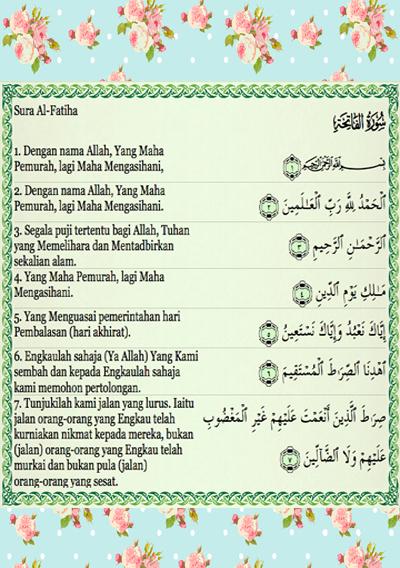 Sura Al-Fatiha
سُورَةُ الفَاتِحَةِ
1. Dengan nama Allah, Yang Maha
Pemurah, lagi Maha Mengasihani,
بِسْمِ اللَّهِ الرَّحْمَٰنِ الرَّحِيمِ ١
2. Dengan nama Allah, Yang Maha
Pemurah, lagi Maha Mengasihani.
ٱلْحَمْدُ لِلَّهِ رَبِّ ٱلْعَـٰلَمِينَ ٢
3. Segala puji tertentu bagi Allah, Tuhan
yang Memelihara dan Mentadbirkan
sekalian alam.
ٱلرَّحْمَـٰنِ ٱلرَّحِيمِ ٣
4. Yang Maha Pemurah, lagi Maha
Mengasihani.
مَـٰلِكِ يَوْمِ ٱلدِّينِ ٤
5. Yang Menguasai pemerintahan hari
Pembalasan (hari akhirat).
إِيَّاكَ نَعْبُدُ وَإِيَّاكَ نَسْتَعِينُ ٥
6. Engkaulah sahaja (Ya Allah) Yang Kami
sembah dan kepada Engkaulah sahaja
kami memohon pertolongan.
ٱهْدِنَا ٱلصِّرَٰطَ ٱلْمُسْتَقِيمَ ٦
7. Tunjukilah kami jalan yang lurus. Iaitu
jalan orang-orang yang Engkau telah
kurniakan nikmat kepada mereka, bukan
(jalan) orang-orang yang Engkau telah
murkai dan bukan pula (jalan)
orang-orang yang sesat.
صِرَٰطَ ٱلَّذِينَ أَنْعَمْتَ عَلَيْهِمْ غَيْرِ ٱلْمَغْضُوبِ
عَلَيْهِمْ وَلَا ٱلضَّآلِّينَ ٧